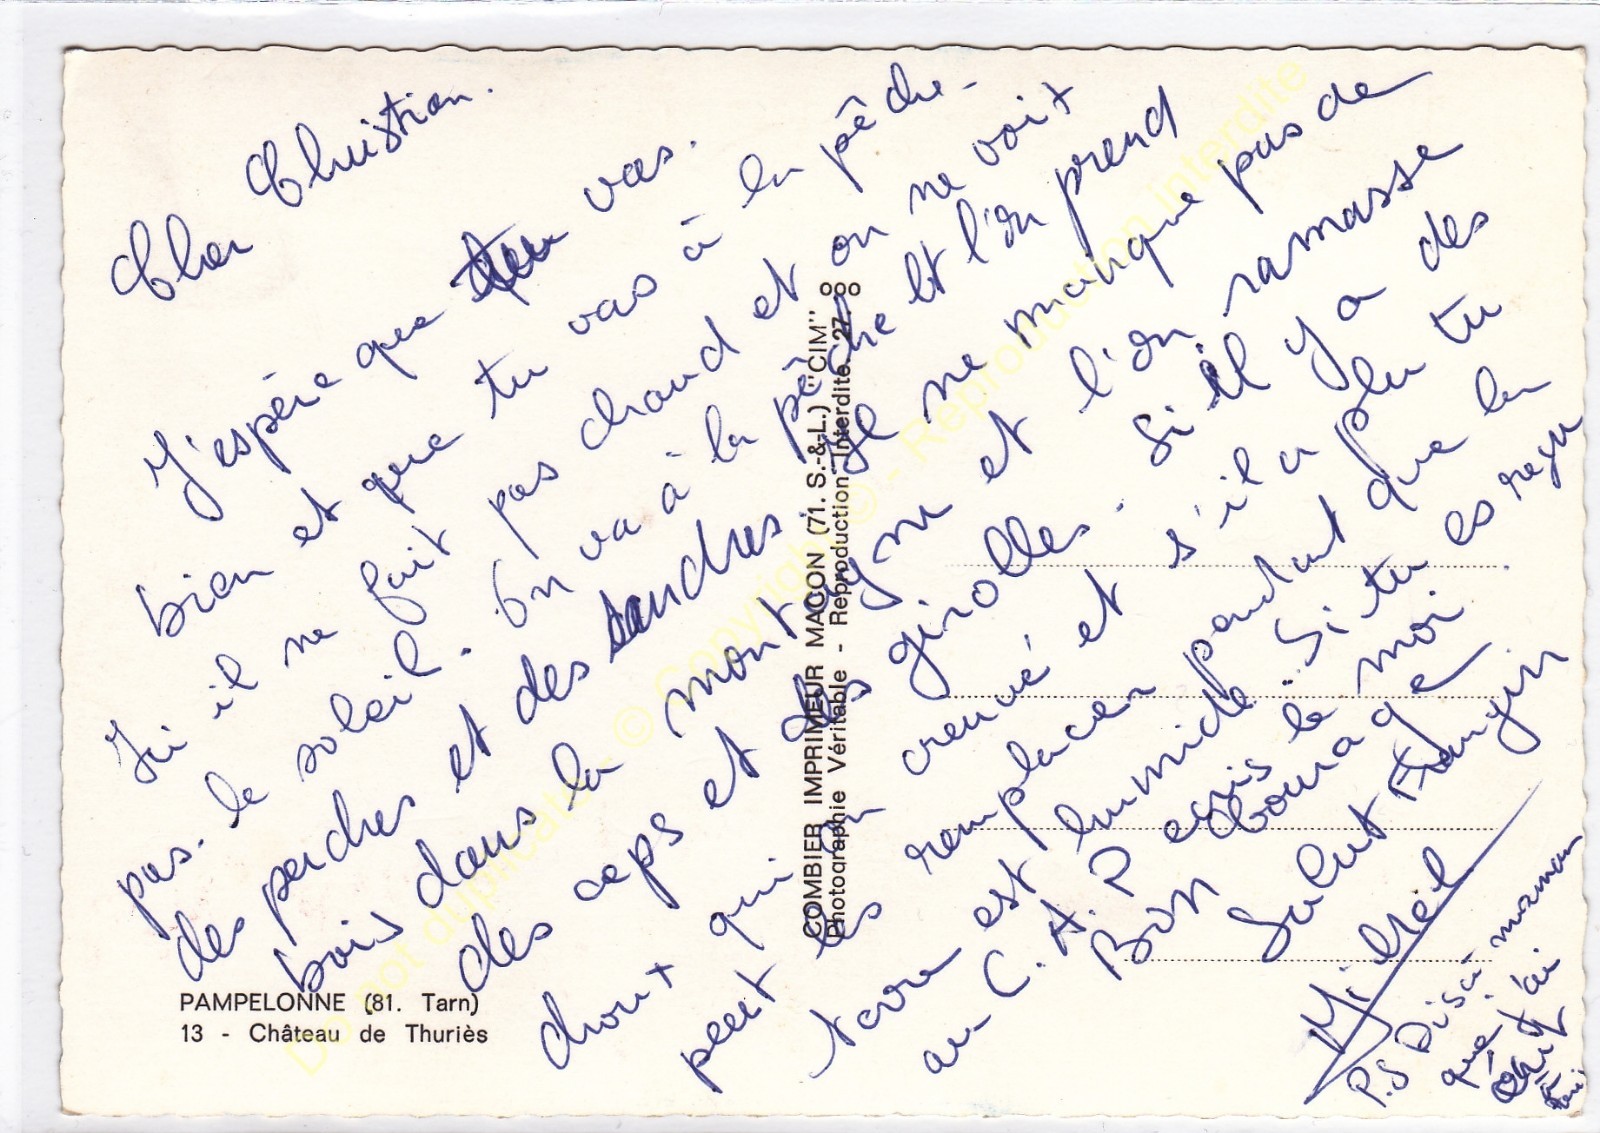 Cher Christian.
J'espère que vas.
bien et que tu vas à la pêche.
Ici il ne fait pas chaud et on ne voit
pas. le soleil. On va à la pêche et l'on prend
des perches et des sandres. Je ne manque pas de
bois dans la montagne et l'on ramasse
des ceps et des girolles. Si il y a des
choux qui on crevé et s'il a plu tu
peut les remplacer pendant que la
terre est humide. Si tu es reçu
au C.A.P ecris le moi
Bon courage
Salut
Michel
P.S Dis à maman
que j'ai
écrit
COMBIER IMPRIMEUR MACON (71. S.-&-L.) "CIM"
Photographie Véritable - Reproduction Interdite.
PAMPELONNE (81. Tarn)
13 - Château de Thuriès
Do not duplicate - © Copyright © - Reproduction interdite